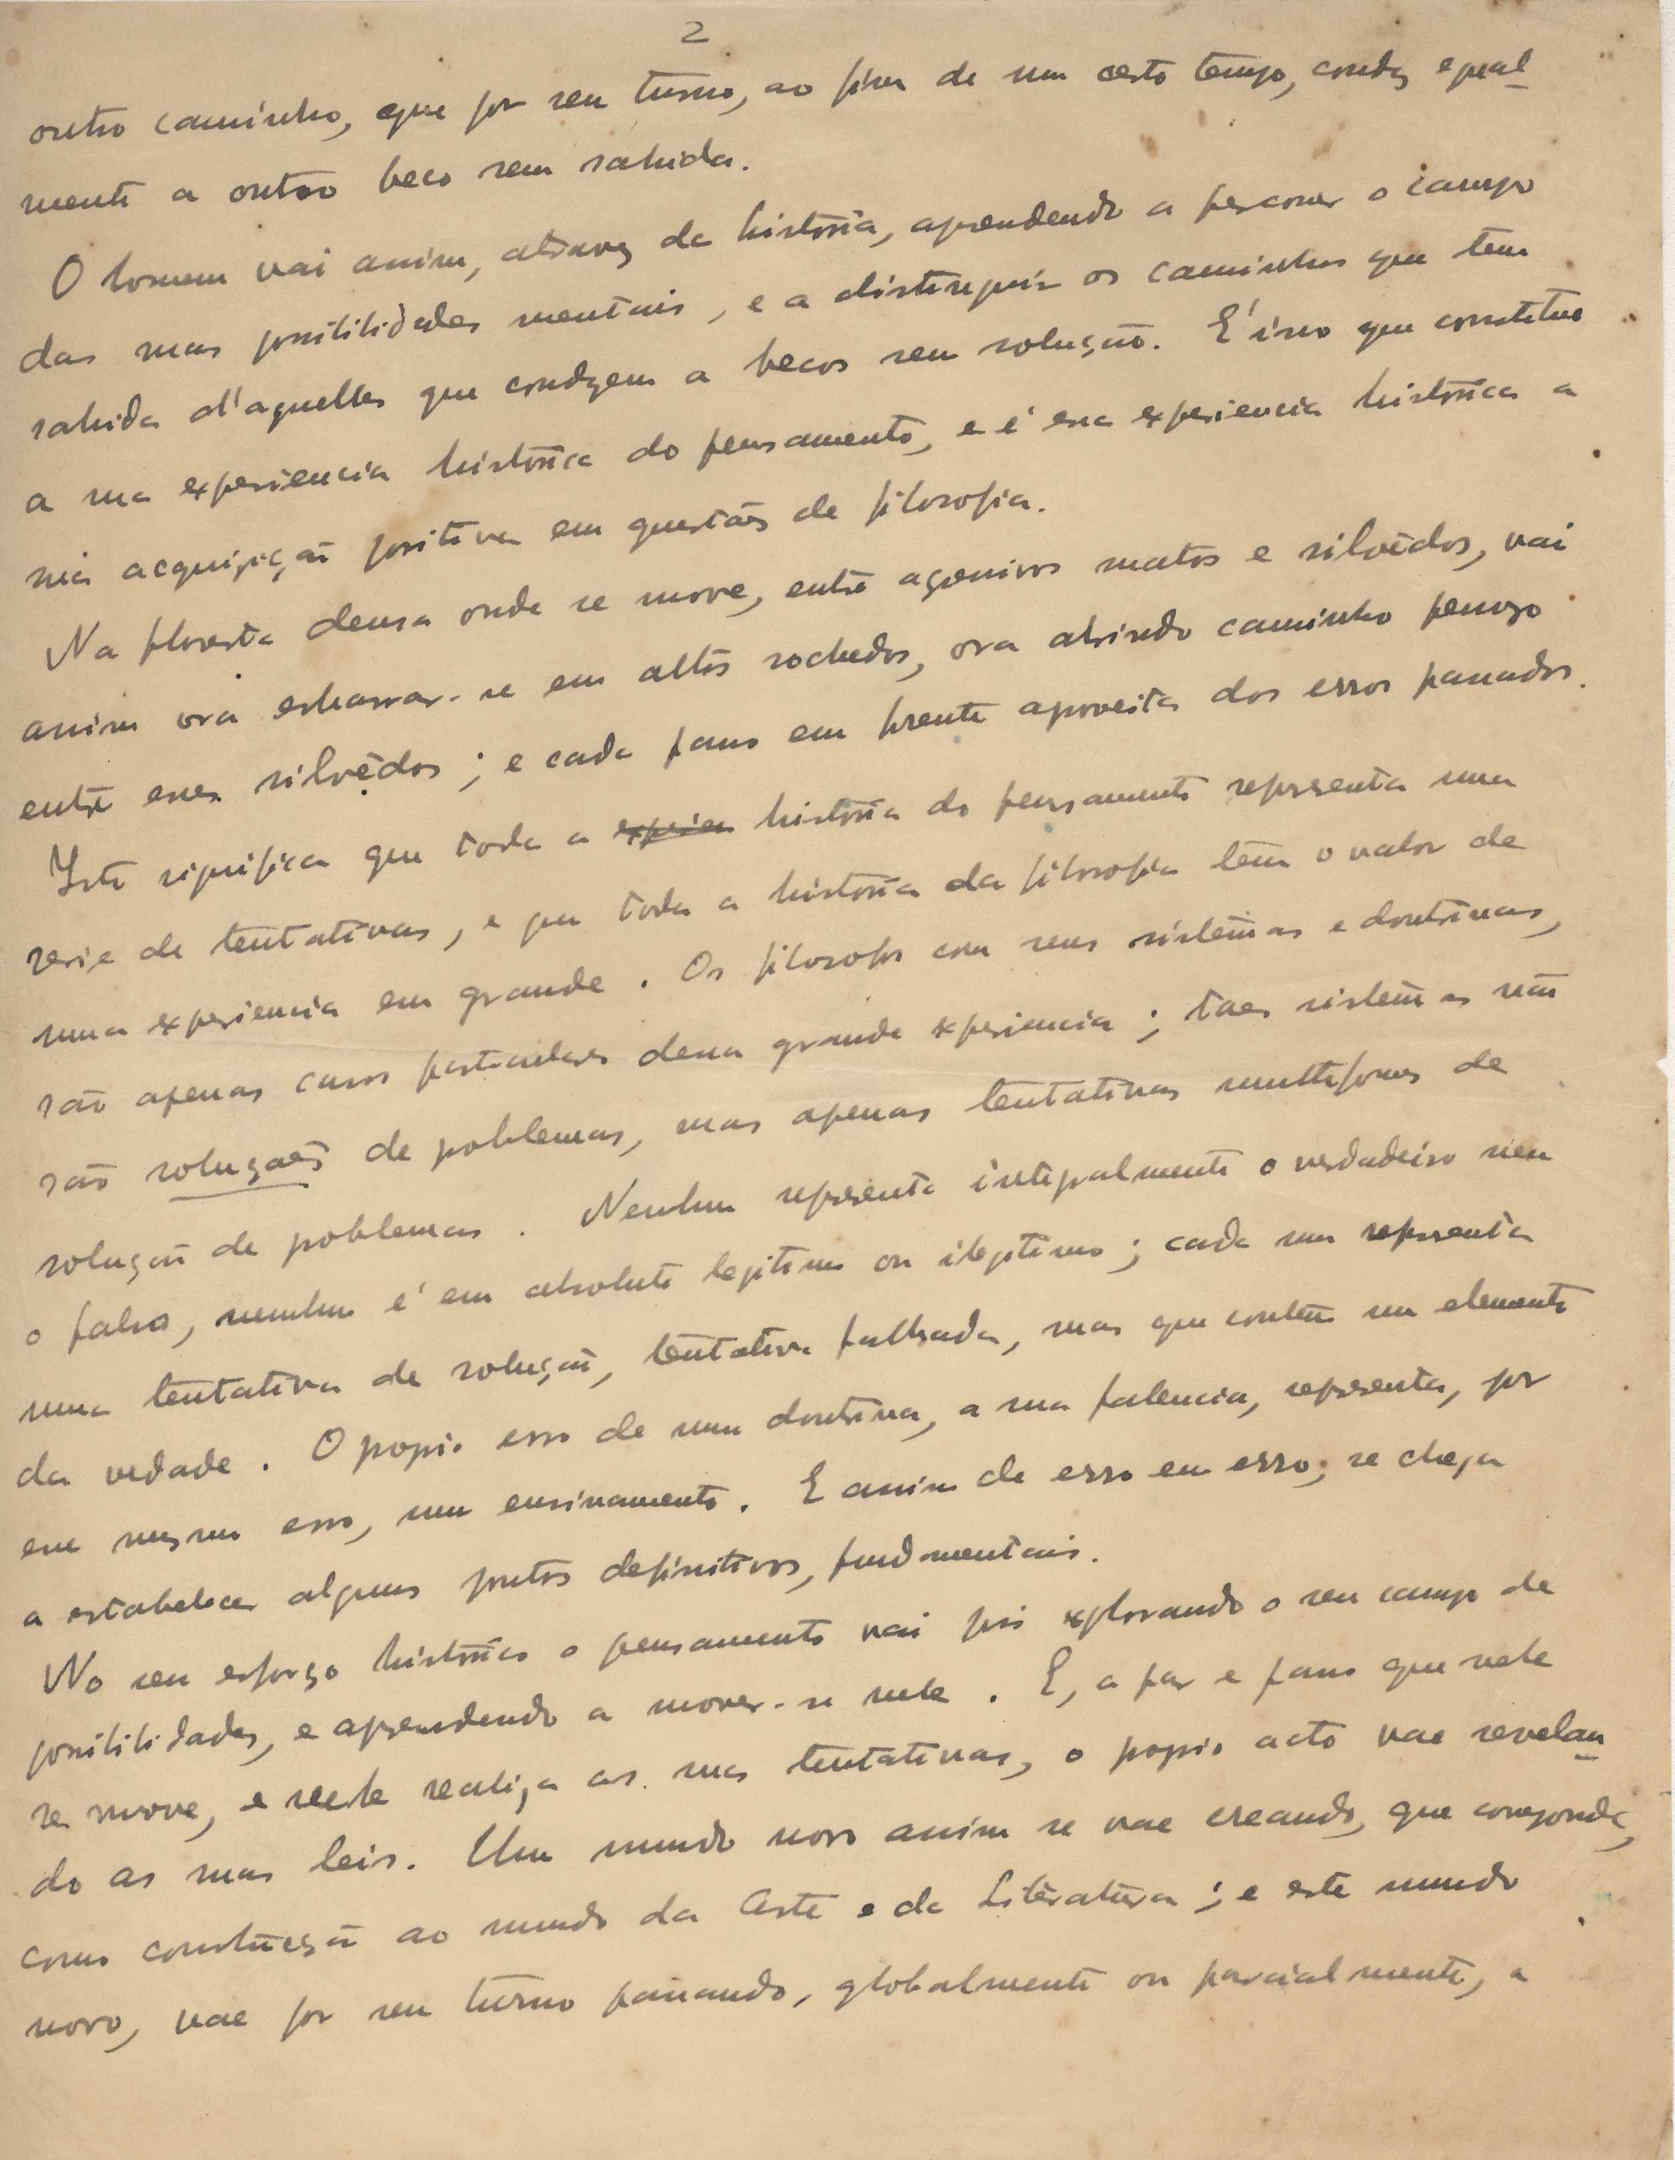 2
outro caminho, que por seu turno, ao fim de um certo tempo, conduz egual-
mente a outro beco sem sahida.
O homem vai assim, atravez da história, aprendendo a percorrer o campo
das suas possibilidades mentais, e a distinguir os caminhos que tem
sahida d'aquelles que conduzem a becos sem solução. E' isso que constitue
a sua experiencia histórica do pensamento, e é essa experiencia histórica a
sua acquisição positiva em questões de filosofia.
Na floresta densa onde se move, entre agressivos matos e silvêdos, vai
assim ora esbarrar-se em altos rochedos, ora abrindo caminho penoso
entre esses silvêdos; e cada passo em frente aproveita dos erros passados.
Isto significa que toda a história do pensamento representa uma
serie de tentativas, e que toda a história da filosofia tem o valor de
uma experiencia em grande. Os filosofos com seus sistemas e doutrinas,
são apenas casos particulares dessa grande experiencia; taes sistemas não
são soluções de problemas, mas apenas tentativas multiformes de
solução de problemas. Nenhum representa integralmente o verdadeiro nem
o falso, nenhum é em absoluto legitimo ou ilegitimo; cada um representa
uma tentativa de solução, tentativa falhada, mas que contem um elemento
da verdade. O proprio erro de uma doutrina, a sua falencia, representa, por
esse mesmo erro, um ensinamento. E assim de erro em erro, se chega
a estabelecer alguns pontos definitivos, fundamentais.
No seu esforço histórico o pensamento vai pois explorando o seu campo de
possibilidades, e aprendendo a mover-se nele. E, a par e passo que nele
se move, e nele realiza as suas tentativas, o proprio acto vae revelan-
do as suas leis. Um mundo novo assim se vae creando, que corresponde,
como construcção ao mundo da Arte e da Literatura; e este mundo
novo, vae por seu turno passando, globalmente ou parcialmente, a